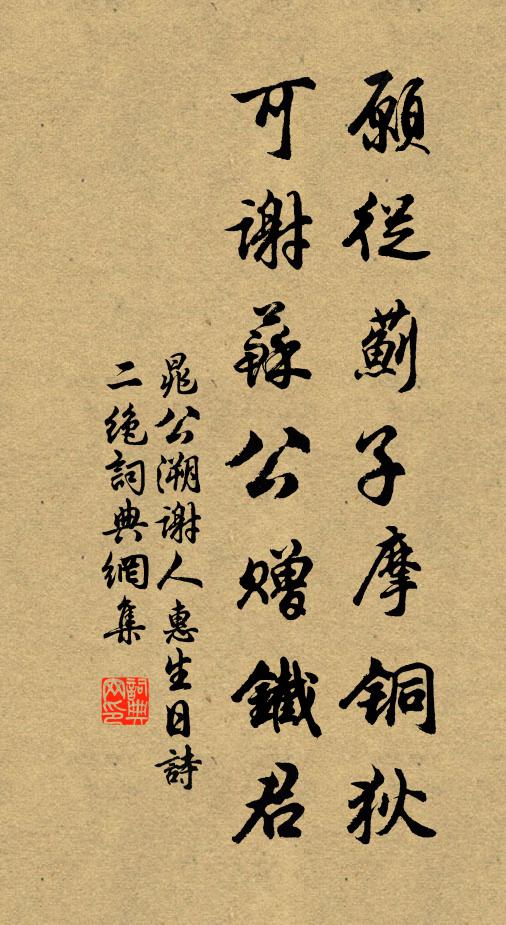 願從薊子摩铜狄
可谢蘇公贈鐵君
晁公溯谢人惠生日詩
二绝詞典網集
詞典网印